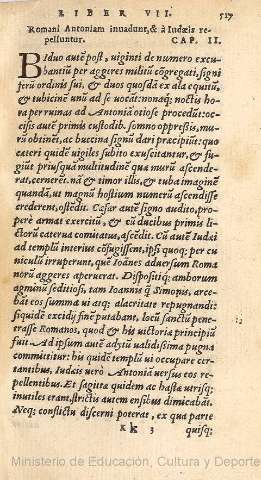 LIBER VII. 527
Romani Antoniam inuadunt, & à Iudæis re-
pelluntur. CAP. II.
BIduo autẽ post, uiginti de numero excu-
bantiũ per aggeres militũ cõgregati, signi
ferũ ordinis sui, & duos quosdã ex ala equitũ,
& tubicinẽ unũ ad se uocãt: nonaq; noctis ho-
ra per ruinas ad Antoniã otiose procedũt: oc-
cisis autẽ primis custodib. somno oppressis, mu-
rũ obtinẽt, ac buccina signũ dari præcipiũt: quo
cæteri quidẽ uigiles subito exuscitantur, & fu-
giũt priusquã multitudinẽ qua murũ ascende-
rat, cernerẽt. nã & timor illis, & tuba imaginẽ
quandã, ut magnũ hostium numerũ ascendisse
crederent, ostẽdit. Cæsar autẽ signo audito, pro-
pere armat exercitũ, & cũ ducibus primis li-
ctorũ caterua comitatus, ascẽdit. Cũ autẽ Iudæi
ad templũ interius cõfugissent, ipsi quoq; per cu-
niculũ irruperunt, quẽ Ioãnes aduersum Roma
norũ aggeres aperuerat. Dispositiq; amborum
agminũ seditiosi, tam Ioannis q̃ Simonis, arce-
bãt eos summa ui atq; alacritate repugnandi:
siquidẽ excidij finẽ putabant, locũ sanctũ pene-
trasse Romanos, quod & his uictoria principiũ
fuit. Ad ipsum autẽ adytũ ualidissima pugna
committitur: his quidẽ templũ ui occupare cer-
tantibus, Iudæis uerò Antoniã uersus eos re-
pellentibus. Et sagitta quidem ac hastæ utrisq;
inutiles erant, strictis autem ensibus dimicabãt.
Neq; conflictu discerni poterat, ex qua parte
kk 3 quisq;
Ministerio de Educación, Cultura y Deporte